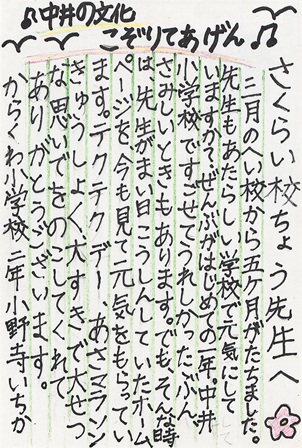 ♪中井の文化
こぞりてあげん♫
さくらい校ちょう先生へ
三月のへい校から五ヶ月がたちました。
先生もあたらしい学校で元気にして
いますか?ぜんぶがはじめての一年。中井
小学校ですごせてうれしかったぶん、
さみしいときもあります。でも、そんな時
は先生がまい日こうしんしていたホーム
ページを今も見て元気をもらってい
ます。テクテクデー、あさマラソン
きゅうしょく大すきで大せつ
な思いでをのこしてくれて
ありがとうございます。
からくわ小学校 二年 小野寺いちか